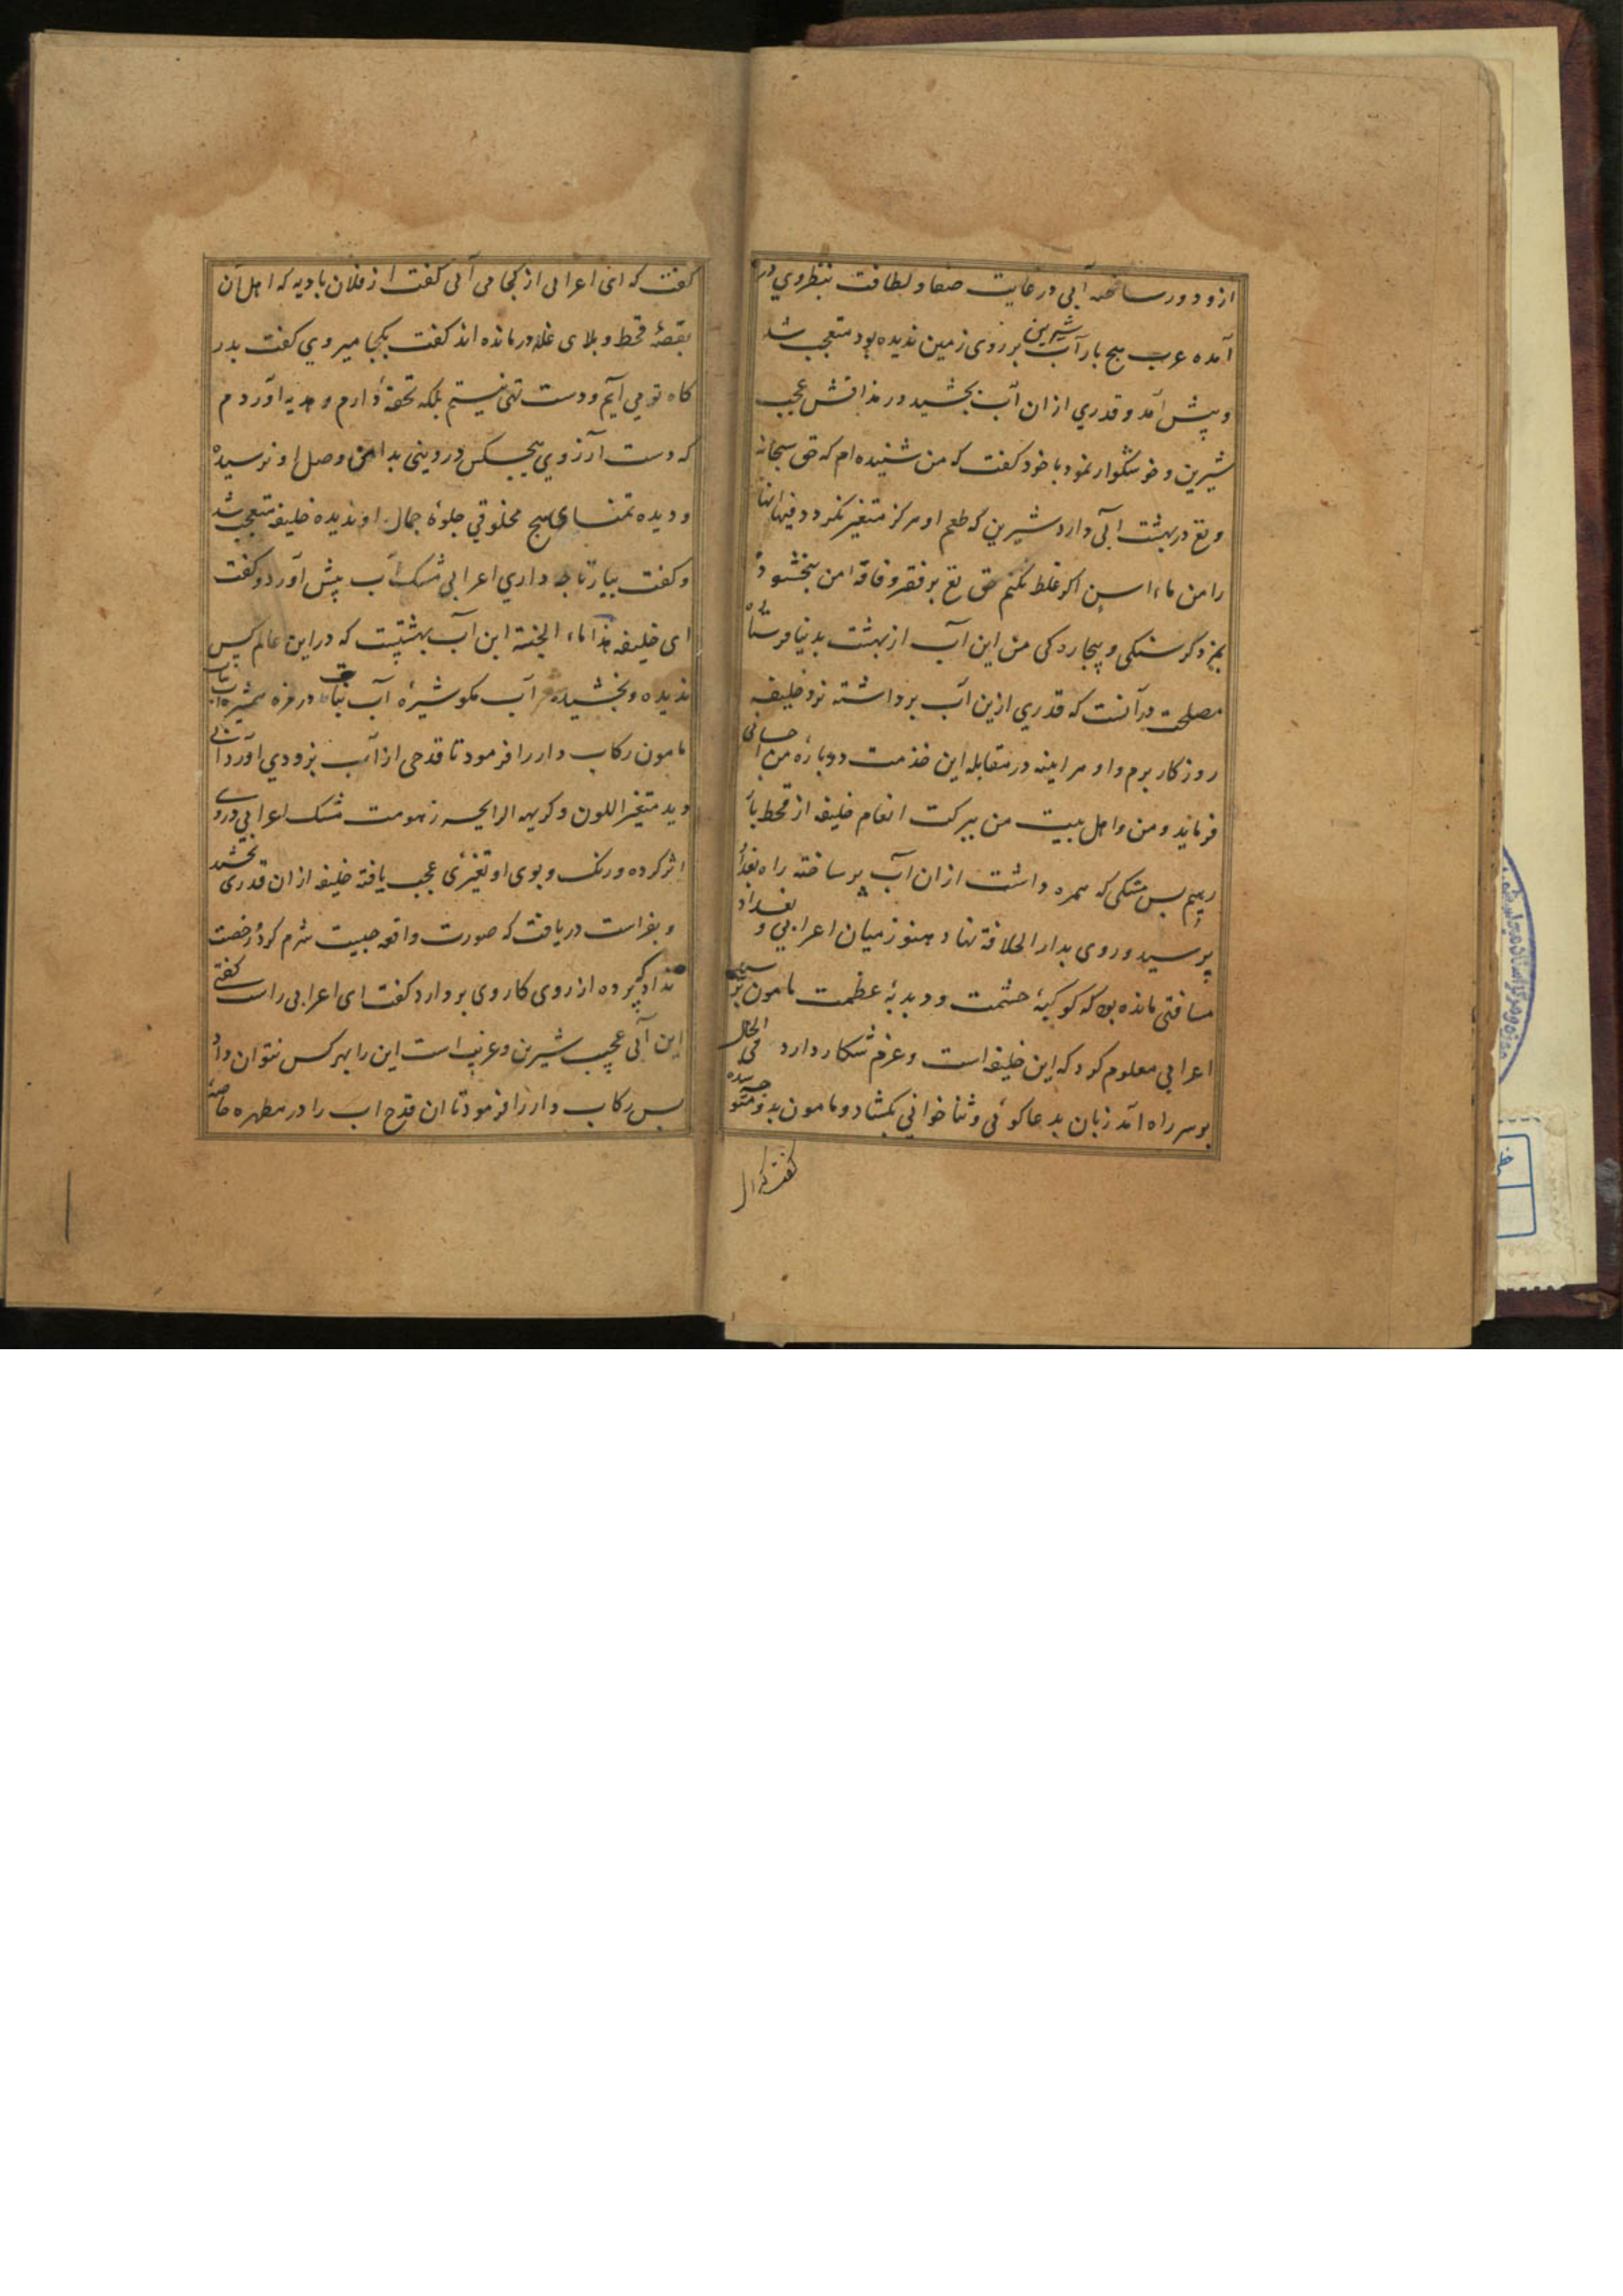 ازو دور ساخته آبی در غایت صفا و لطافت بنظر وی در
آمده عرب هیچ بار آب شیرین بر روی زمین ندیده بود متعجب شد
و پیش آمد و قدری ازان آب بچشید در مذاقش عجب
شیرین و خوشگوار نمود با خود گفت که من شنیده ام که حق سبحانه
و تع در بهشت آبی دارد شیرین که طعم او هرگز متغیر نگردد فیها انها
را من ماء اسن اگر غلط نکنم حق تع بر فقر و فاقه من ببخشوده
بمزد گرسنگی و بیچاردگی من این آب از بهشت بدنیا فرستاده
مصلحت درآنست که قدری ازین آب برداشته نزد خلیفه
روزگار برم و او هر اینه در مقابله این خدمت دوباره من احسانی
فرماید و من و اهل بیت من ببرکت انعام خلیفه از قحط باز
رهیم پس مشکی که همره داشت ازان آب پر ساخته راه بغداد
پرسید و روی بدار الخلافة نهاد هنوز میان اعرابی و بغداد
مسافتی مانده بود که کوکبهٔ حشمت و دبدبهٔ عظمت مامون برسید
اعرابی معلوم کرد که این خلیفه است و عزم شکار دارد فی الحال
بوسر راه آمد زبان بدعا کوئی و ثنا خوانی بکشاد و مامون بدو متوجه شده
گفت که ای
گفت که ای اعرابی از کجا می آئی گفت از فلان بادیه که اهل آن
بقصهٔ قحط و بلای غلا درمانده اند گفت بکجا میروی گفت بدر
کاه تو می آیم و دست تهی نیستم بلکه تحفهٔ دارم و هدیه آوردم
که دست آرزوی هیچکس در دنیی بدامن وصل او نرسیده
و دیده تمنای هیچ مخلوقی جلوهٔ جمال او ندیده خلیفه متعجب شد
و گفت بیار تا چه داری اعرابی مشک آب پیش آورد و گفت
ای خلیفه هذا ماء الجنة این آب بهشتیست که در این عالم کس
ندیده و نچشیده آب مگو شیرهٔ آب نبات در مزه همشیره آب
مامون رکاب دار را فرمود تا قدحی از آب نزد وی آورد آبی
دید متغیر اللون و کریه الرایحه زهومت مشک اعرابی در وی
اثر کرده و رنگ و بوی او تغیری عجب یافته خلیفه ازان قدری بچشید
و بفراست دریافت که صورت واقعه چیست شرم کرد رخصت
نداد که پرده از روی کار وی بردارد گفت ای اعرابی راست گفتی
این آبی عجب شیرین و غریب است این را بهر کس نتوان داد
پس رکاب دار را فرمود تا ان قدح اب را در مطهره خاصهٔ